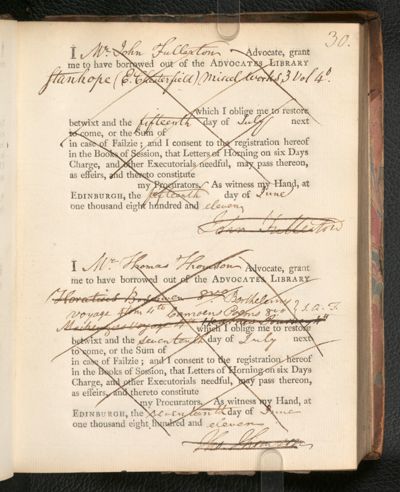 30.
I Mr. John Fullerton Advocate, grant
me to have borrowed out of the ADVOCATES LIBRARY
Stanhope (E. Chesterfield) Miscel. Works 3 Vol 4o.
which I oblige me to restore
betwixt and the fifteenth day of July next
to come, or the Sum of
in case of Failzie; and I consent to the registration hereof
in the Books of Session, that Letters of Horning on six Days
Charge, and other Executorials needful, may pass thereon,
as effeirs, and thereto constitute
my Procurators. As witness my Hand, at
EDINBURGH, the fifteenth day of June
one thousand eight hundred and eleven
John Fullerton
I Mr. Thomas Thomson Advocate, grant
me to have borrowed out of the ADVOCATES LIBRARY
Horatius
voyage 4to Camoens Poems
voyage which I oblige me to restore
betwixt and the seventeenth day of July next
to come, or the Sum of
in case of Failzie; and I consent to the registration hereof
in the Books of Session, that Letters of Horning on six Days
Charge, and other Executorials needful, may pass thereon,
as effeirs, and thereto constitute
my Procurators. As witness my Hand, at
EDINBURGH, the seventeenth day of June
one thousand eight hundred and eleven
Tho. Thomson